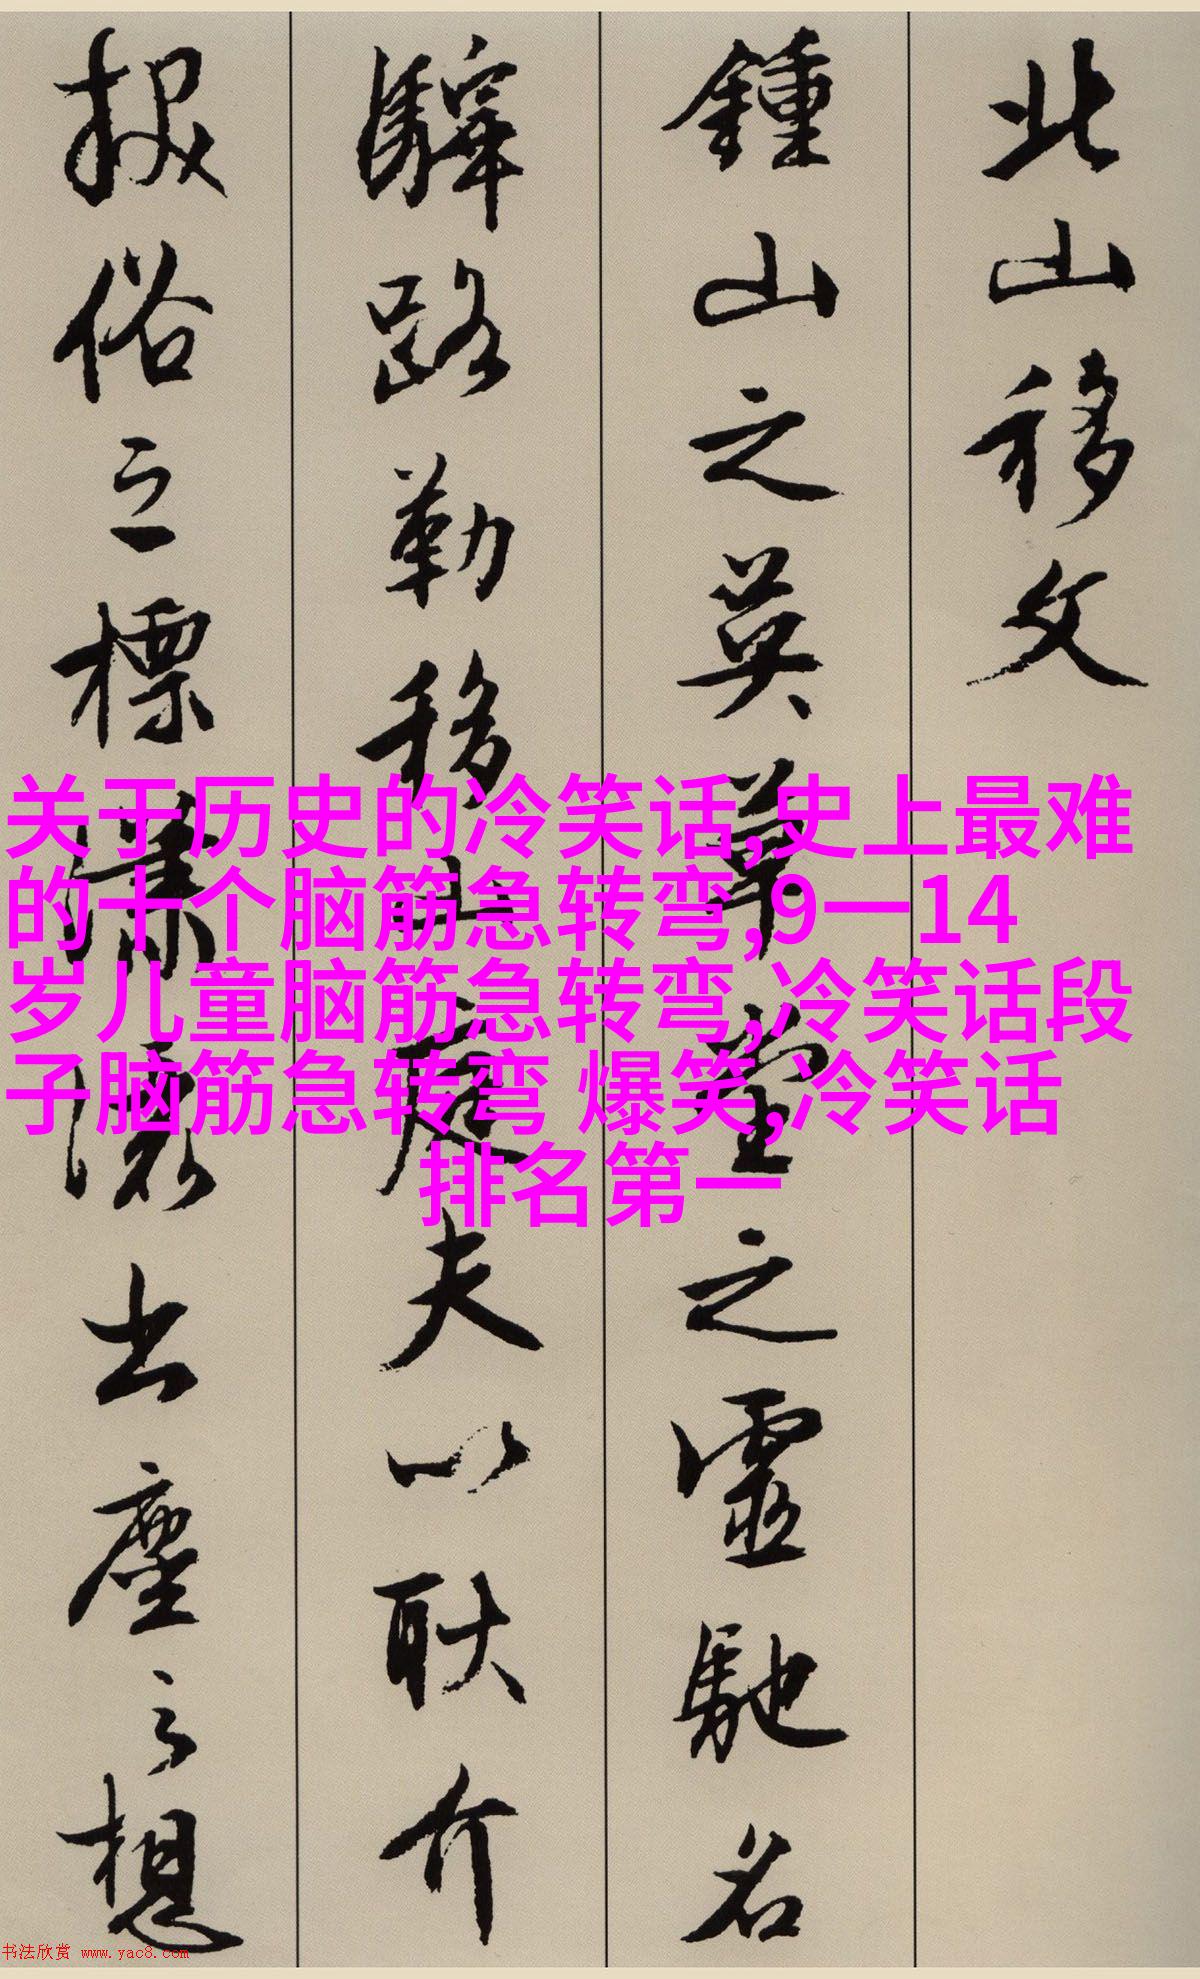 北山移文
鍾山之英草堂之靈馳名
驛路勒移山庭夫以耿介
拔俗之標瀟灑出塵之想
关于历史的冷笑话,史上最难
的十个脑筋急转弯,9一14
岁儿童脑筋急转弯,冷笑话段
子脑筋急转弯 爆笑,冷笑话
排名第一
书法欣赏 www.yac8.com